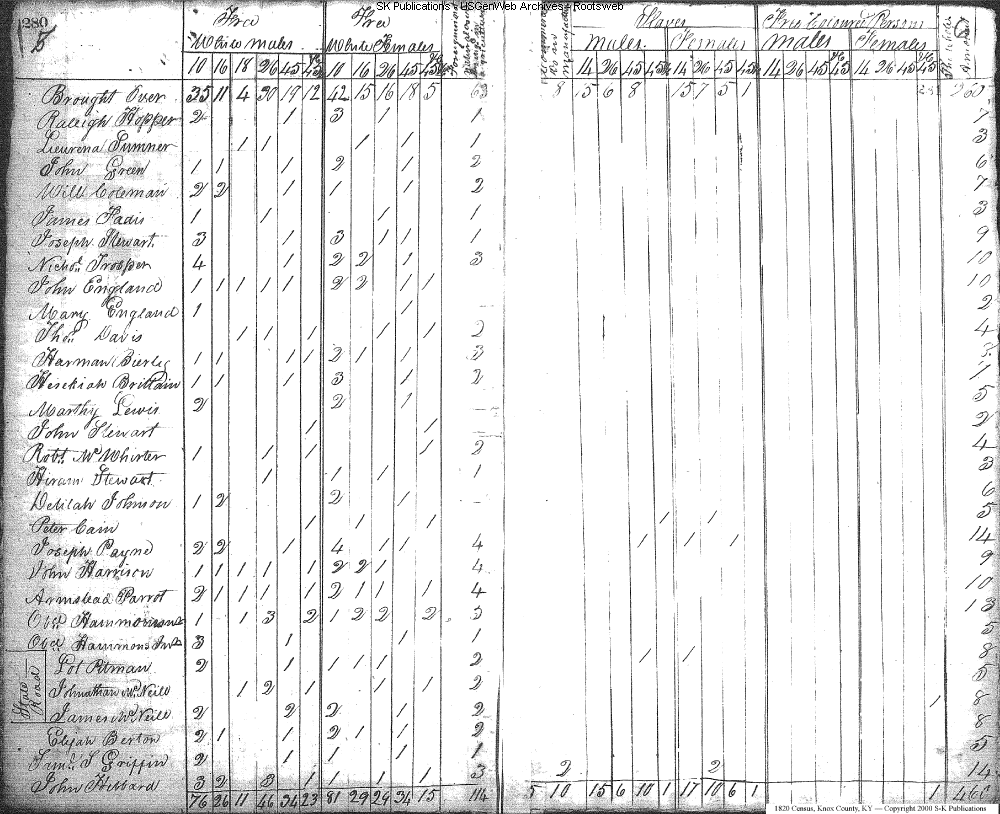 SK Publications - USGenWeb Archives - Rootsweb
1280
5
Free Free Slaves Free Coloured Persons
White males White Females males Females males Females
10 16 18 26 45 45 10 16 26 45 45 14 26 45 45 14 26 45 45 14 26 45 45 14 26 45 45
Brought Over 35 11 4 30 19 12 42 15 16 18 5 8 15 6 8 15 7 5 1
Raleigh Hopper 2 1 3 1 1 7
Sumner 1 1 1 1 1 3
John Green 1 1 1 2 1 2 6
Will Coleman 2 2 1 1 1 2 7
James 1 1 1 1 3
Joseph Stewart 3 1 3 1 1 1 9
Nicho. Trosper 4 1 2 2 1 3 10
John England 1 1 1 1 1 2 2 1 1 10
Mary England 1 1 2
Tho. Davis 1 1 1 1 1 2 4
Harman 1 1 1 1 2 1 1 3
Hesekiah Brittain 1 1 1 3 1 2
Marthy Lewis 2 2 1 5
John Stewart 1 1 2
Robt. McWhirter 1 1 1 1 1 2 4
Hiram Stewart 1 1 1 1 3
Delilah Johnson 1 2 2 1 6
Peter Cain 1 1 1 1 1 5
Joseph Payne 2 2 1 4 1 1 4 1 1 1 14
John Harrison 1 1 1 1 1 2 2 1 4 9
Armstead Parrot 2 1 1 1 1 2 1 1 1 4 10
Obd. Hammons 1 1 3 2 1 2 2 2 5 13
Obd. Hammons Jnr 3 1 1 1 5
State Road
Lot Pitman 2 1 1 1 1 2 1 1 8
Johnathan McNeill 1 2 1 1 1 2 5
James McNeill 2 2 2 1 2 1 8
Elijah Berton 2 1 1 2 1 1 2 8
Saml. S Griffin 2 1 1 1 1 5
John Hibbard 3 2 3 1 1 1 1 3 2 2 14
76 26 11 46 34 23 81 29 29 34 15 114 5 10 15 6 10 1 17 10 6 1 1 460
1820 Census, Knox County, KY — Copyright 2000 S-K Publications